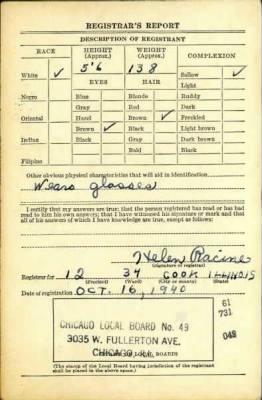 REGISTRAR'S REPORT
DESCRIPTION OF REGISTRANT
RACE HEIGHT (Approx.) WEIGHT (Approx.) COMPLEXION
White ✓ 5'6 138 Sallow ✓
EYES HAIR Light
Negro Blue Blonde Ruddy
Gray Red Dark
Oriental Hazel Brown ✓ Freckled
Brown ✓ Black Light brown
Indian Black Gray Dark brown
Bald Black
Filipino
Other obvious physical characteristics that will aid in identification
Wears glasses
I certify that my answers are true; that the person registered has read or has had
read to him his own answers; that I have witnessed his signature or mark and that
all of his answers of which I have knowledge are true, except as follows:
Helen Racine
(Signature of registrar)
Registrar for 12 34 COOK ILLINOIS
(Precinct) (Ward) (City or county) (State)
Date of registration OCT. 16, 1940
61
731
CHICAGO LOCAL BOARD No. 49
3035 W. FULLERTON AVE.
CHICAGO, ILL.
(The stamp of the Local Board having jurisdiction of the registrant
shall be placed in the above space)